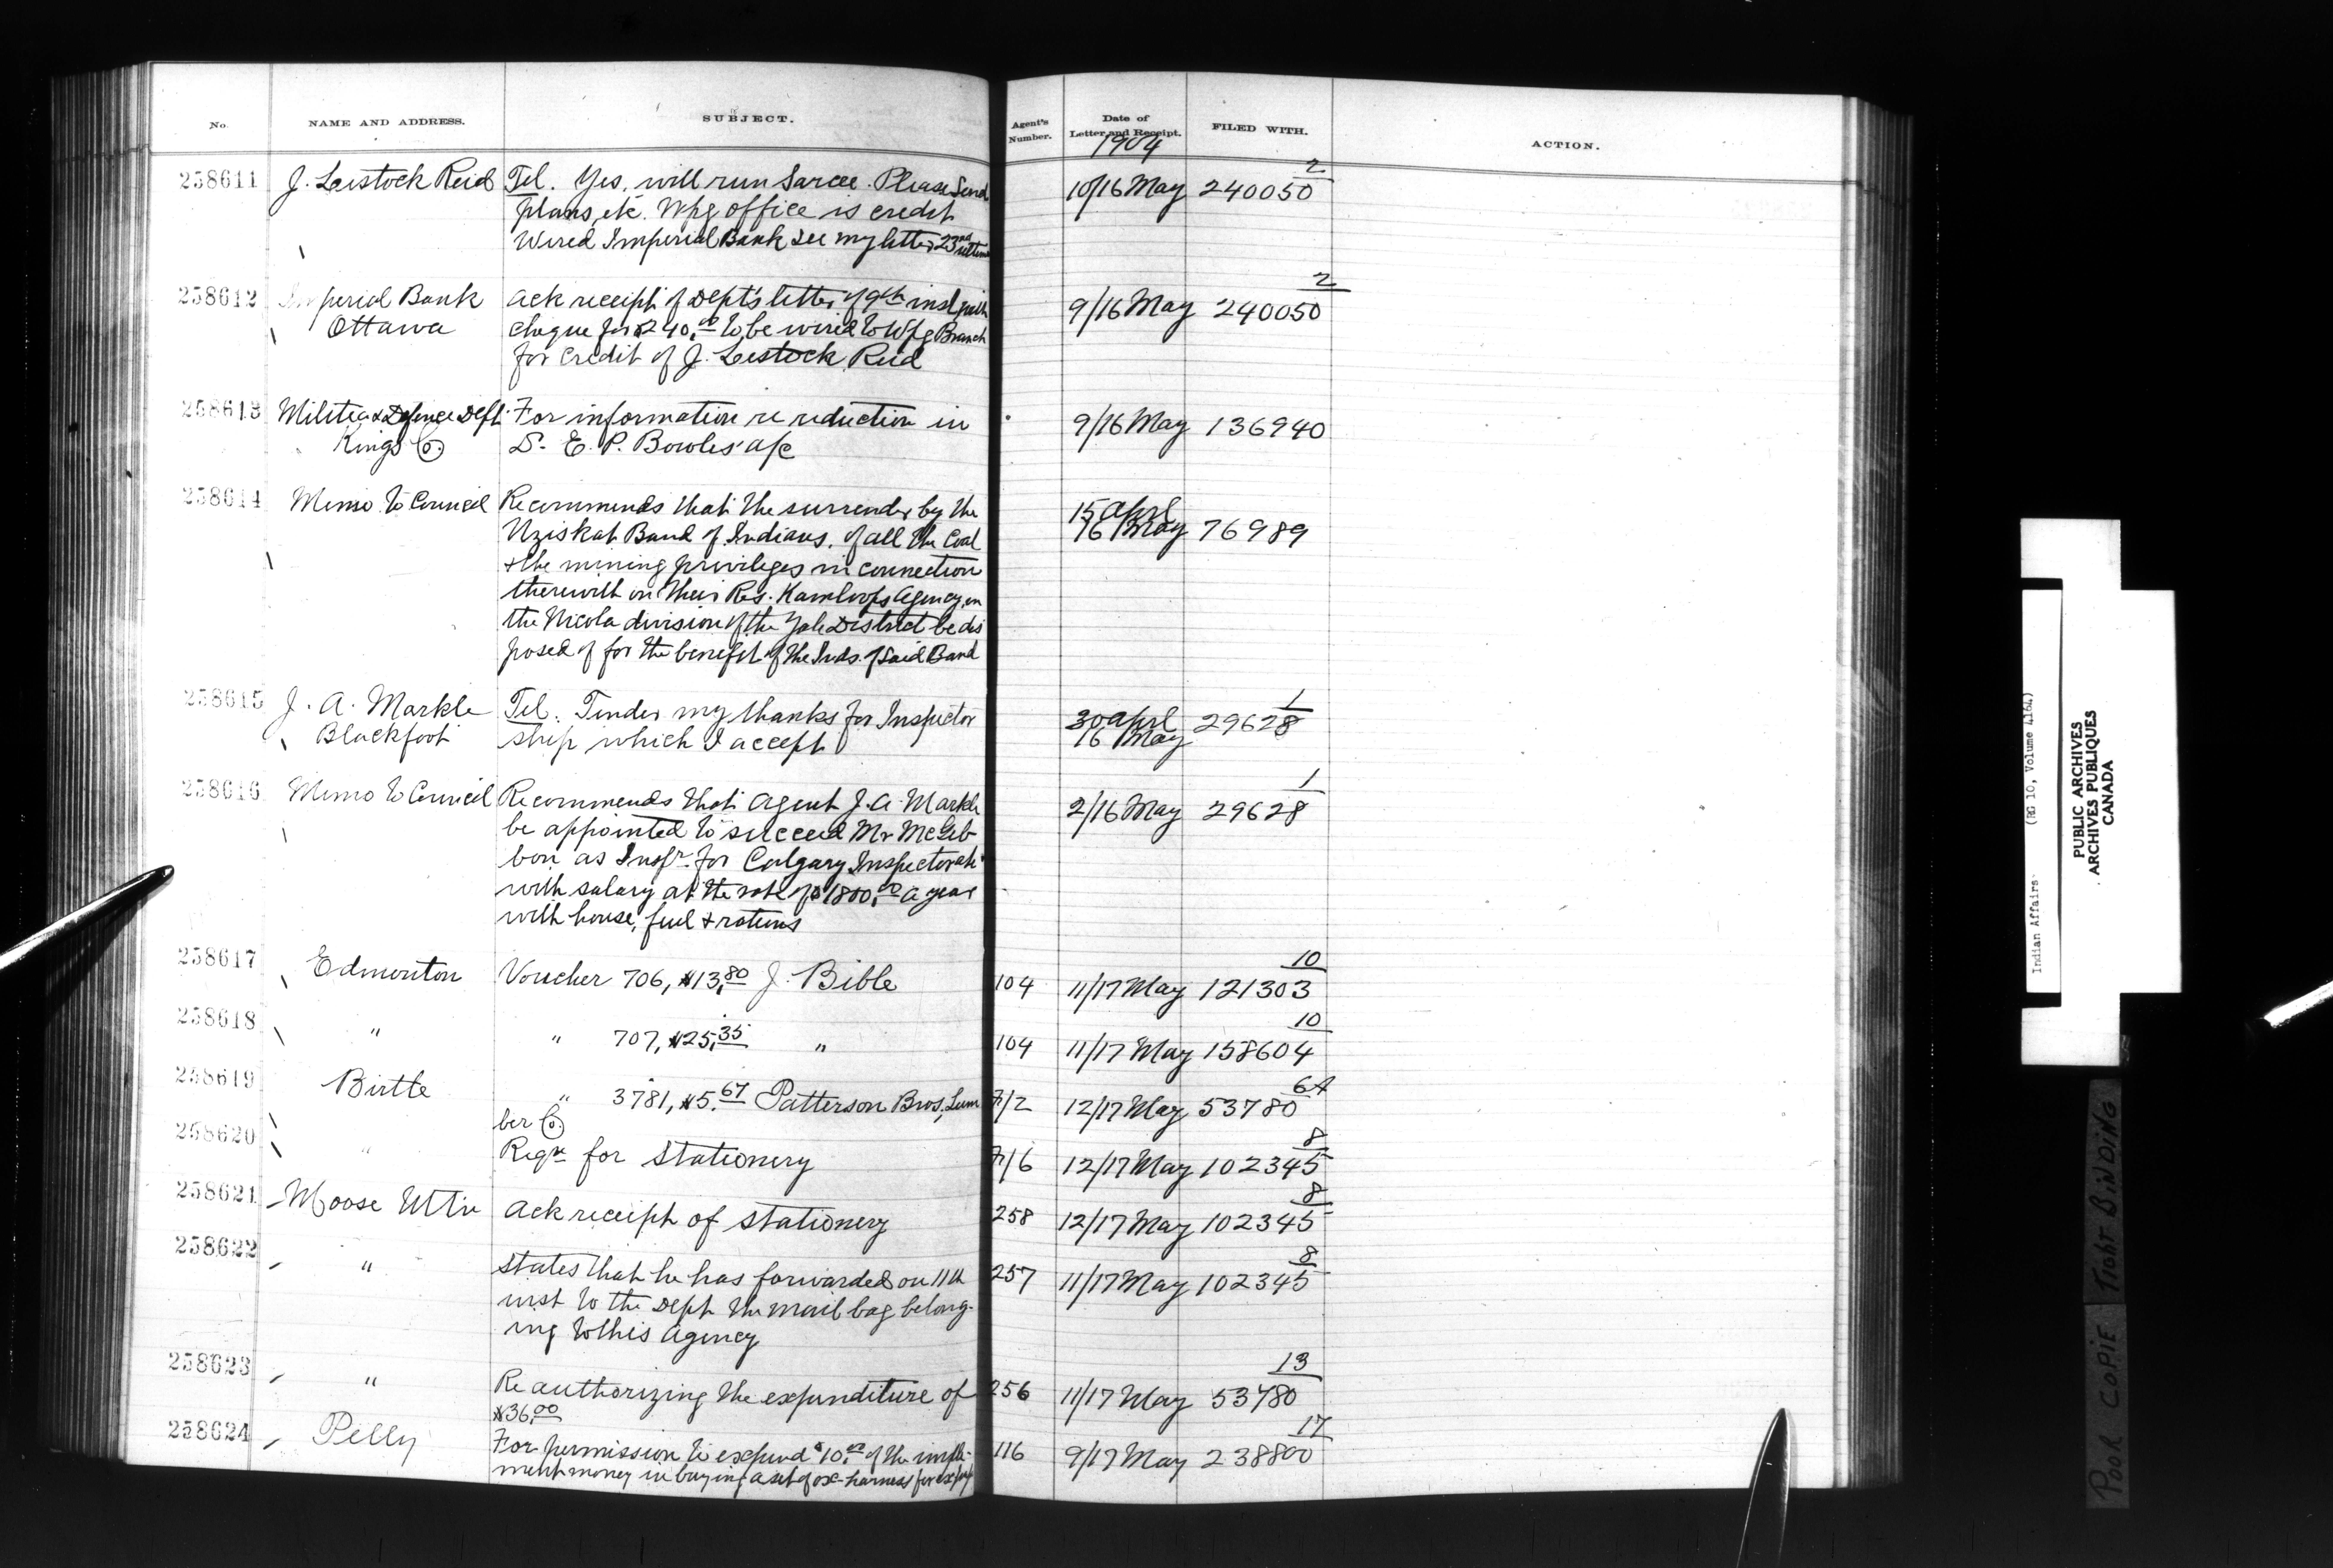 No. NAME AND ADDRESS. SUBJECT. Agent's Number. Date of Letter and Receipt. FILED WITH. ACTION.
1904
258611 J. Lestock Reid Tel. Yes, will run Sarcee. Please Send 10/16 May 240050 2
plans, etc. Wpg office is credit
Wired Imperial Bank See my letter 23rd ultimo
258612 Imperial Bank Ack receipt of Dept's letter of 9th inst with 9/16 May 240050 2
Ottawa cheque for $240.00 to be wired to Wpg Branch
for credit of J. Lestock Reid
258613 Militia & Defence Dept For information re reduction in 9/16 May 136940
Kings Co. E. P. Bowles' a/c
258614 Memo to Council Recommends that the surrender by the 15 April
Band of Indians, of all the Coal 16 May 76989
& the mining privileges in connection
therewith on their Res. Kamloops Agency, in
the Nicola division of the Yale District be dis
posed of for the benefit of the Inds. of Said Band
258615 J. A. Markle Tel. Tender my thanks for Inspector 30 April 29628 1
Blackfoot ship which I accept 16 May
258616 Memo to Council Recommends that Agent J. A. Markle 2/16 May 29628 1
be appointed to succeed Mr McGib-
bon as Inspr. for Calgary Inspectorate
with salary at the rate of $1800.00 a year
with house, fuel & rations
258617 Edmonton Voucher 706, $13.80 J. Bible 104 11/17 May 121303 10
258618 " " 707, $25.35 " 104 11/17 May 158604 10
258619 Birtle " 3781, $5.67 Patterson Bros, Lum 7/2 12/17 May 53780 6A
ber Co.
258620 " Reqn for Stationery 7/6 12/17 May 102345 8
258621 Moose Mtn Ack receipt of stationery 258 12/17 May 102345 8
258622 " States that he has forwarded on 11th 257 11/17 May 102345 8
inst to the Dept the mail bag belong-
ing to this Agency
258623 " Re authorizing the expenditure of 256 11/17 May 53780 13
$36.00
258624 Pelly For permission to expend $10.00 of the imple- 116 9/17 May 238800 17
ment money in buying a set of ox-harness for
Indian Affairs (RG 10, Volume 4164)
PUBLIC ARCHIVES
ARCHIVES PUBLIQUES
CANADA
POOR COPIE TIGHT BINDING